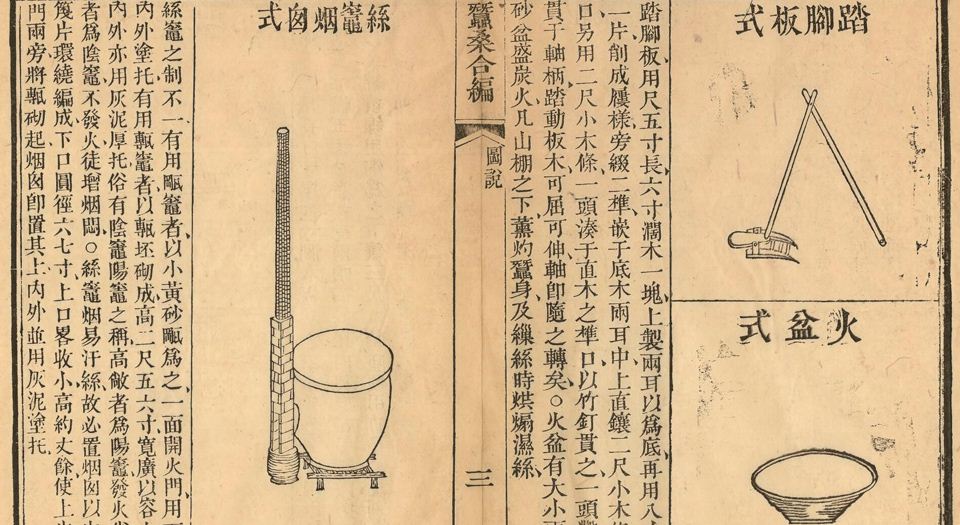 踏腳板式
火盆式
踏腳板用尺五寸長六寸濶木一塊上製兩耳以爲底再用八
一片削成屨樣旁綴二榫嵌于底木兩耳中上直鑲二尺小木
口另用二尺小木條一頭湊于直木之榫口以竹釘貫之一頭
貫于軸柄踏動板木可屈可伸軸卽隨之轉矣○火盆有大小
砂盆盛炭火凡山棚之下薰灼蠶身及繅絲時烘煏濕絲
蠶桑合編
圖說
三
絲竈烟囪式
絲竈之制不一有用甌竈者以小黃砂甌爲之一面開火門用
內外塗托有用甎竈者以甎坯砌成高二尺五六寸寬廣以容
內外亦用灰泥厚托俗有陰竈陽竈之稱高敞者爲陽竈發火
者爲陰竈不發火徒增烟悶○絲竈烟易汙絲故必置烟囪以
篾片環繞編成下口圓徑六七寸上口畧收小高約丈餘使上
門兩旁將甎砌起烟囪卽置其上內外並用灰泥塗托